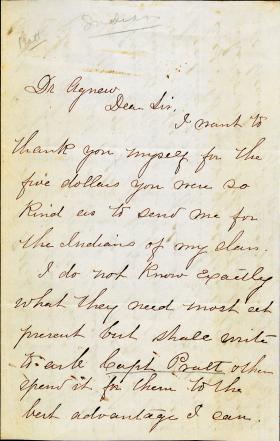 Pratt
Indians
Dr Agnew
Dear Sir,
I want to
thank you myself for the
five dollars you were so
kind as to send me for
the Indians of my class.
I do not know exactly
what they need most at
present but shall write
to ask Capt Pratt & then
spend it for them to the
best advantage I can.